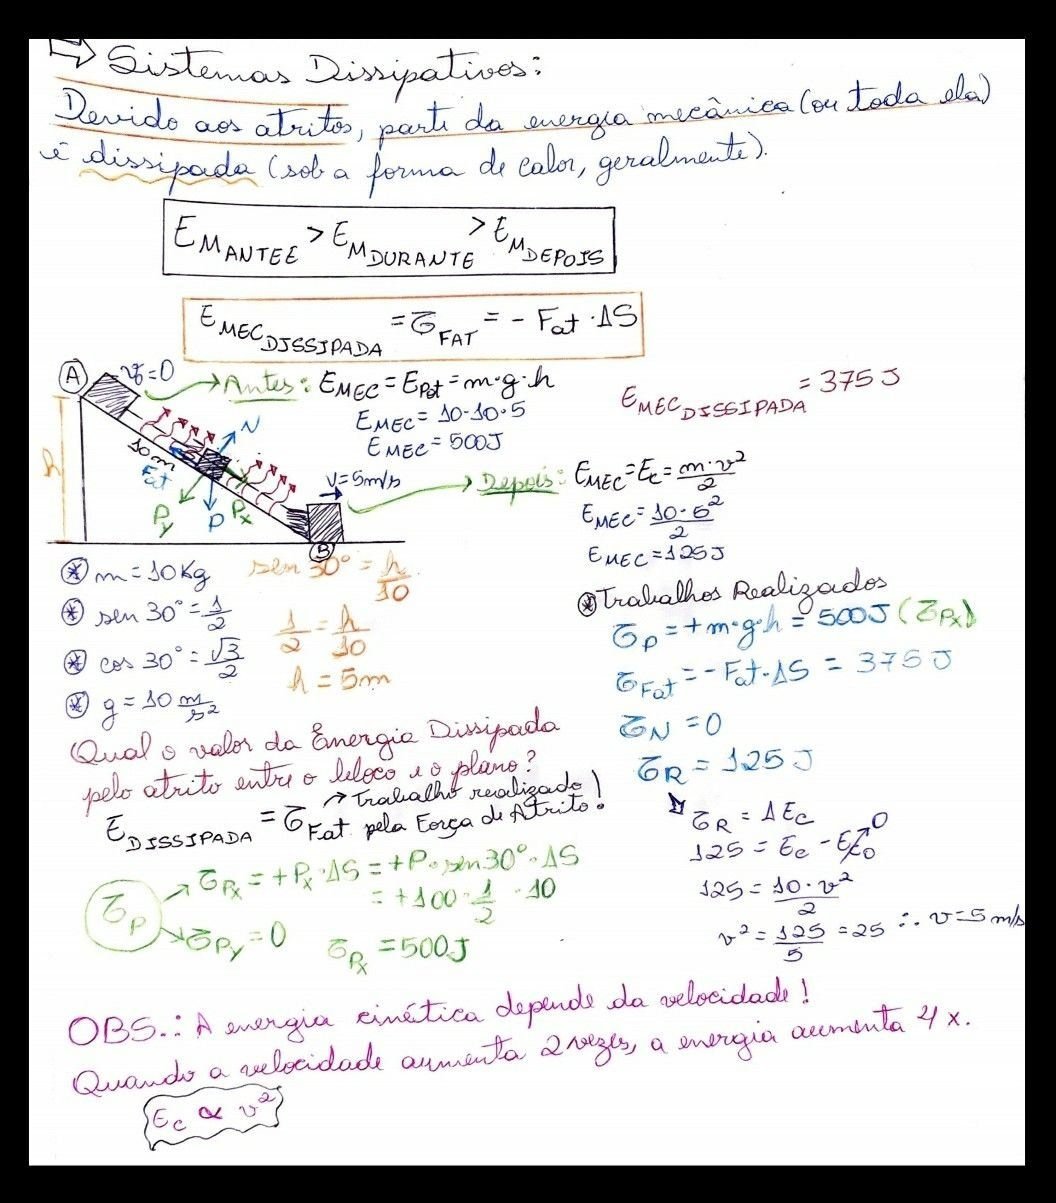 ⇒ Sistemas Dissipativos:
Devido aos atritos, parte da energia mecânica (ou toda ela)
é dissipada (sob a forma de calor, geralmente).
E_M_ANTEE > E_M_DURANTE > E_M_DEPOIS
E_MEC_DISSIPADA = τ_FAT = - Fat · ΔS
A v₀=0
→ Antes: E_MEC = E_Pot = m·g·h
E_MEC = 10·10·5
E_MEC = 500J
E_MEC_DISSIPADA = 375 J
h
10 m
Fat
N
Py
P
Px
v=5m/s
B
→ Depois: E_MEC = Ec = m·v²/2
E_MEC = 10·5²/2
E_MEC = 125J
* m = 10Kg
* sen 30° = 1/2
* cos 30° = √3/2
* g = 10 m/s²
sen 30° = h/10
1/2 = h/10
h = 5m
* Trabalhos Realizados
τ_P = + m·g·h = 500J (τ_Px)
τ_Fat = - Fat·ΔS = 375 J
τ_N = 0
τ_R = 125 J
Qual o valor da Energia Dissipada
pelo atrito entre o bloco e o plano?
E_DISSIPADA = τ_Fat → Trabalho realizado
pela Força de Atrito!
τ_R = ΔEc
125 = Ec - Ec₀ 0
125 = 10·v²/2
v² = 125/5 = 25 ∴ v = 5 m/s
τ_P
τ_Px = + Px·ΔS = + P·sen30°·ΔS
= + 100 · 1/2 · 10
τ_Py = 0 τ_Px = 500J
OBS.: A energia cinética depende da velocidade!
Quando a velocidade aumenta 2 vezes, a energia aumenta 4 x.
Ec ∝ v²